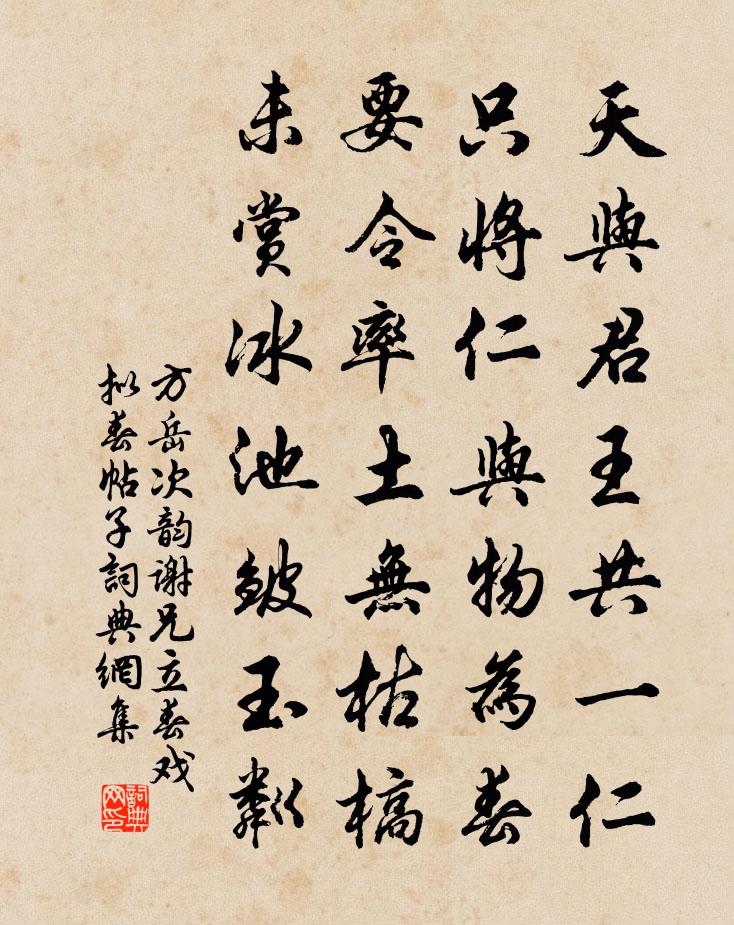 天與君王共一仁
只將仁與物為春
要令率土無枯槁
未賞冰池皺玉粼
方岳次韵谢兄立春戏
拟春帖子詞典網集
詞典
网印